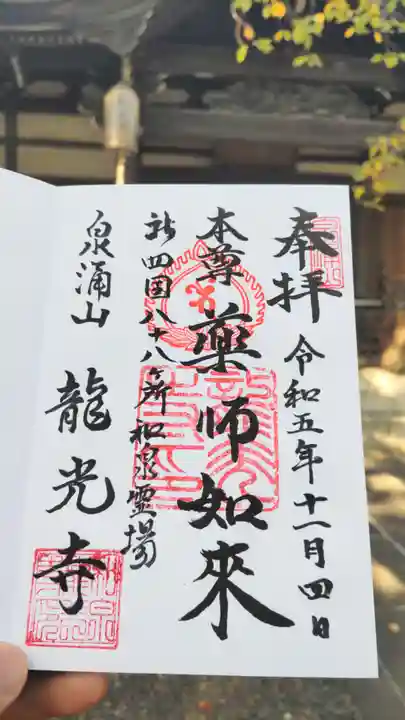 奉拝
令和五年十一月四日
本尊 薬師如來
新四国八十八ヶ所和泉霊場
泉涌山 龍光寺